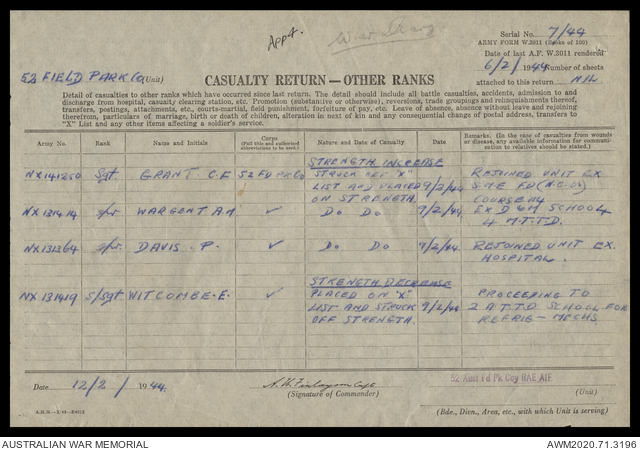 Serial No. 7/44
ARMY FORM W.3011 (Books of 100)
App4.
War Diary
Date of last A.F. W.3011 rendered
6/2/1944 Number of sheets
attached to this return NIL
52 FIELD PARK Co (Unit)
CASUALTY RETURN—OTHER RANKS
Detail of casualties to other ranks which have occurred since last return. The detail should include all battle casualties, accidents, admission to and
discharge from hospital, casualty clearing station, etc. Promotion (substantive or otherwise), reversions, trade groupings and relinquishments thereof,
transfers, postings, attachments, etc., courts-martial, field punishment, forfeiture of pay, etc. Leave of absence, absence without leave and rejoining
therefrom, particulars of marriage, birth or death of children, alteration in next of kin and any consequential change of postal address, transfers to
"X" List and any other items affecting a soldier's service.
Army No. Rank Name and Initials Corps (Full title and authorized abbreviations to be used.) Nature and Date of Casualty Date Remarks. (In the case of casualties from wounds or disease, any available information for communication to relatives should be stated.)
STRENGTH INCREASE
NX141250 Sgt. GRANT C.F 52 FD PK Co STRUCK OFF "X" LIST AND PLACED ON STRENGTH 9/2/44 REJOINED UNIT EX S.M.E FD (N.C.Os) COURSE 14
NX131414 Spr WARGENT A.M ✓ Do Do 9/2/44 EX D & M SCHOOL 4 M.T.T.D.
NX131364 Spr. DAVIS. P. ✓ Do Do 9/2/44. REJOINED UNIT EX. HOSPITAL.
STRENGTH DECREASE
NX131419 S/Sgt WITCOMBE. E. ✓ PLACED ON "X" LIST AND STRUCK OFF STRENGTH. 9/2/44 PROCEEDING TO 2 A.T.T.D SCHOOL FOR REFRIG—MECHS
Date 12/2/1944.
A.H. Finlayson Capt
(Signature of Commander)
52 Aust Fd Pk Coy RAE AIF
(Unit)
(Bde., Divn., Area, etc., with which Unit is serving)
AUSTRALIAN WAR MEMORIAL
AWM2020.71.3196